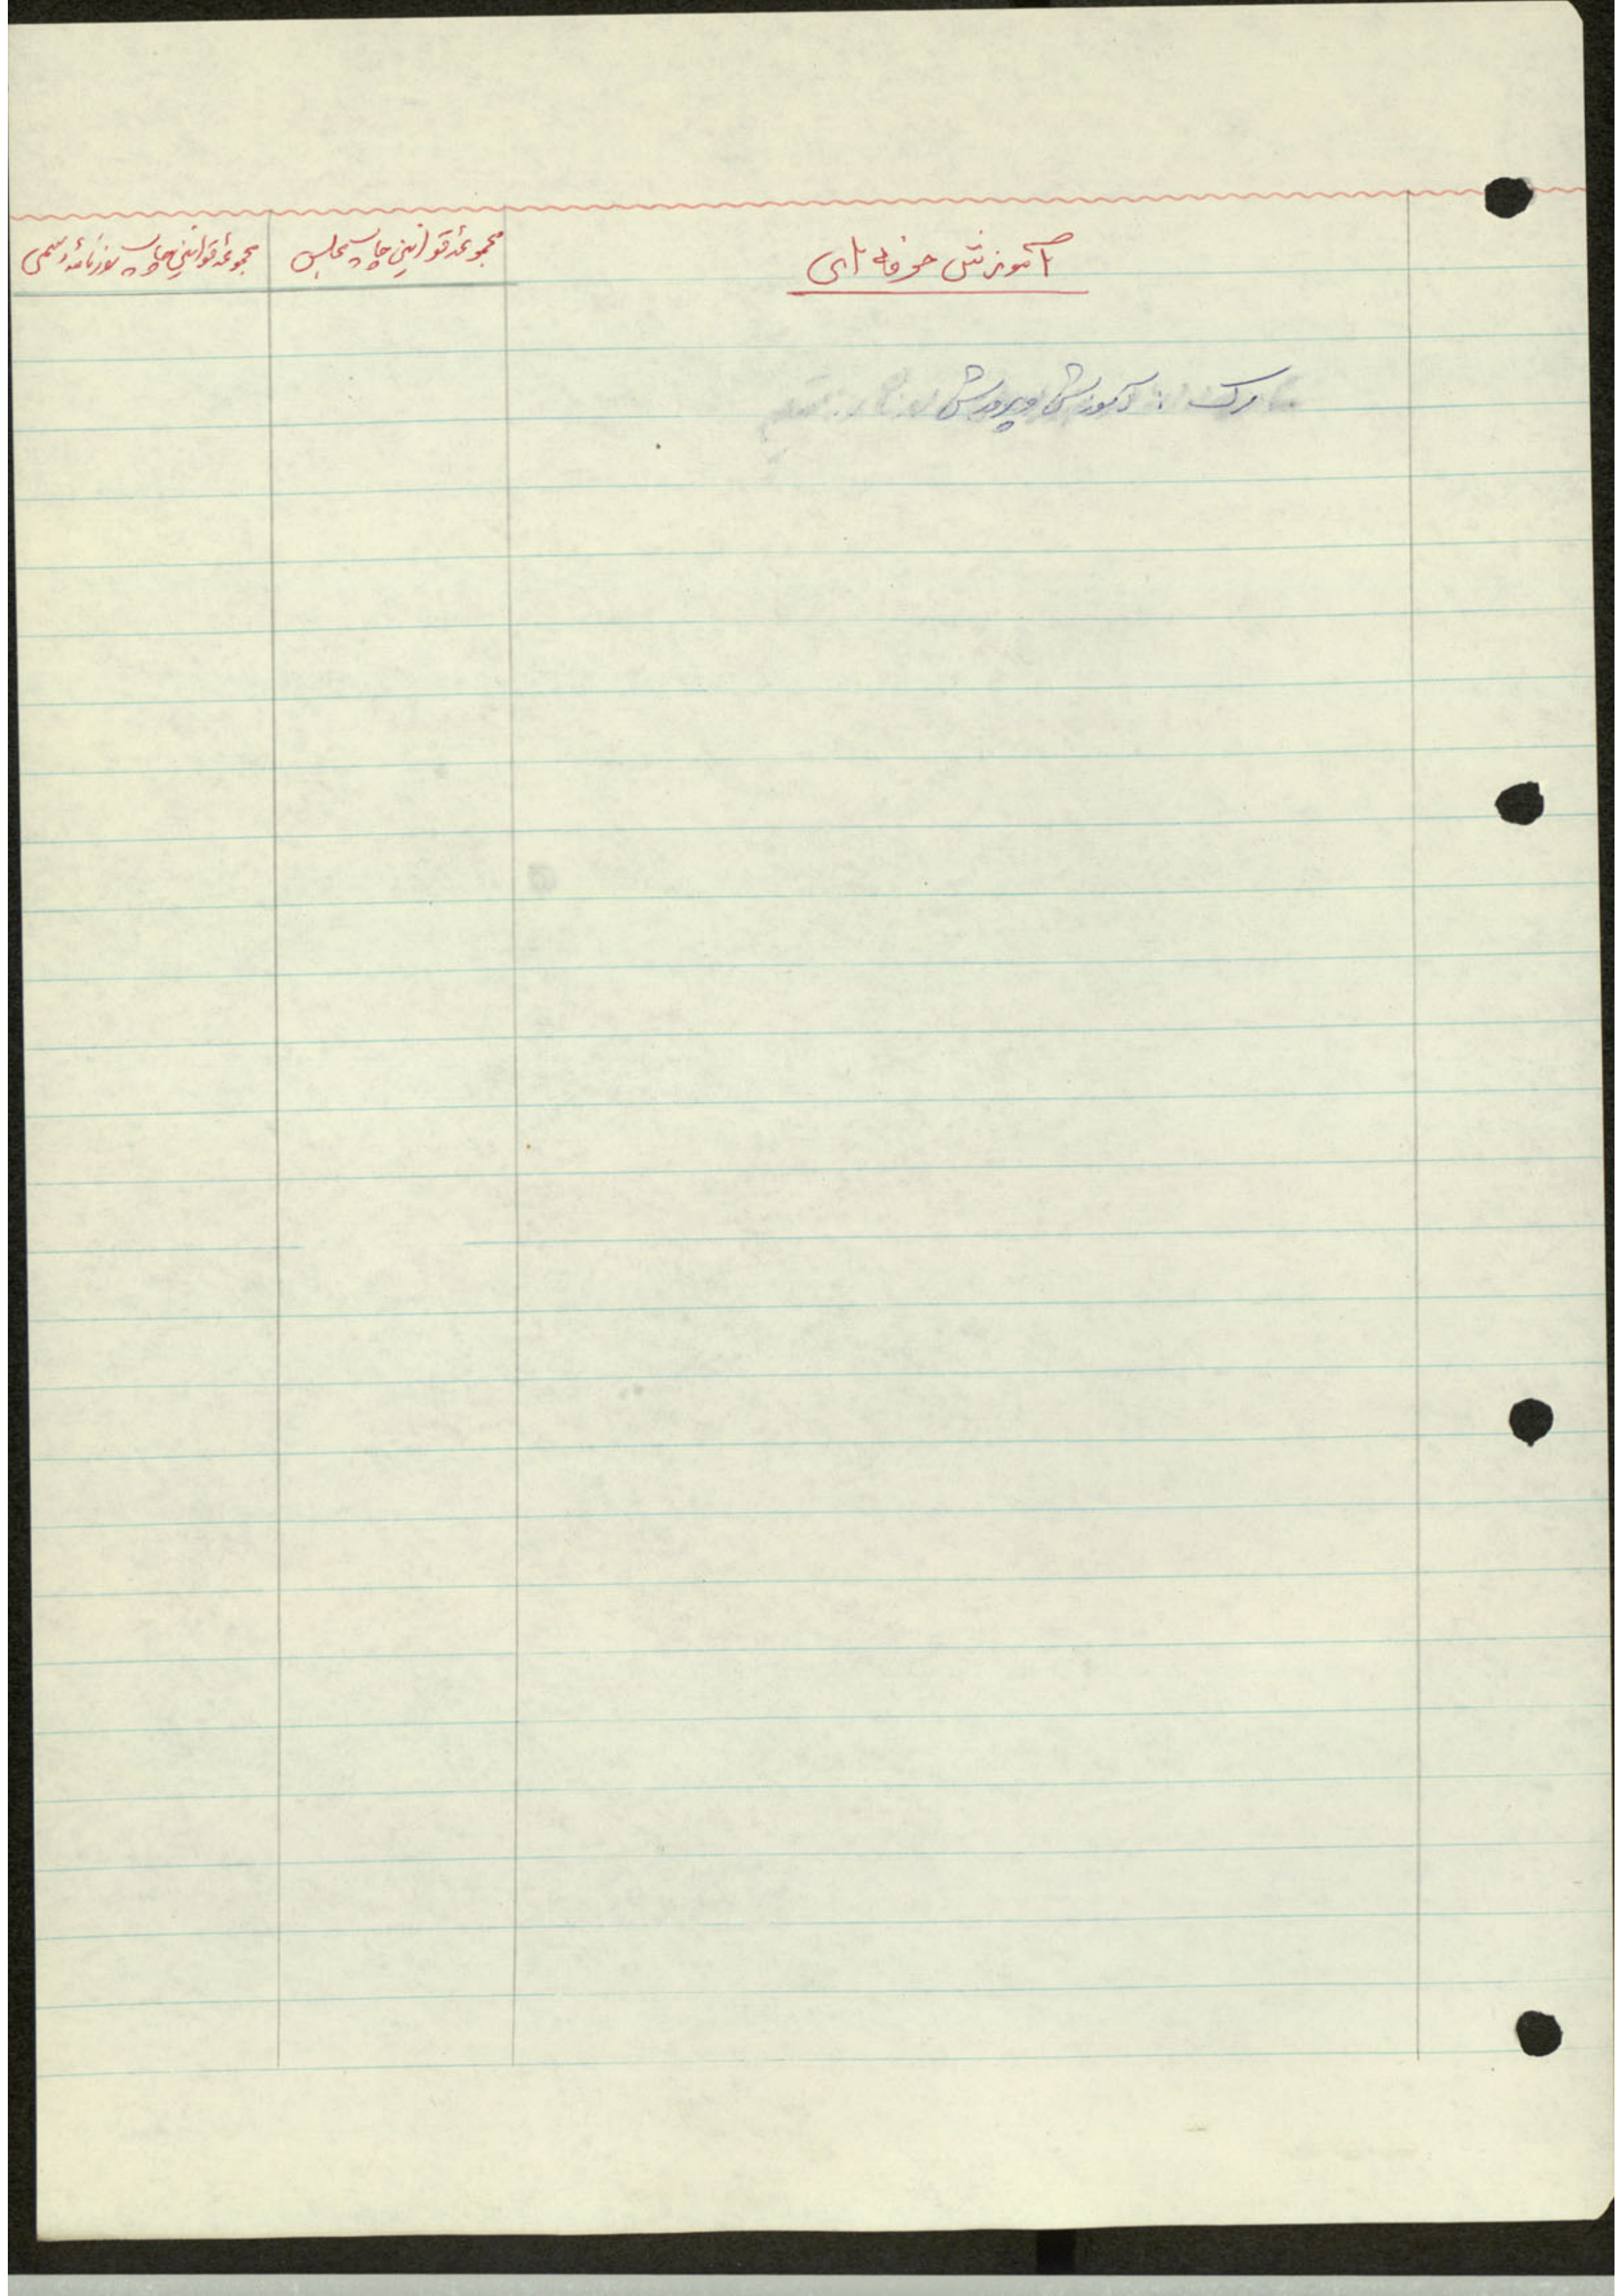 آموزش حرفه ای
مجموعهٔ قوانین چاپ مجلس
مجموعهٔ قوانین چاپ روزنامهٔ رسمی
رک : آموزش و پرورش